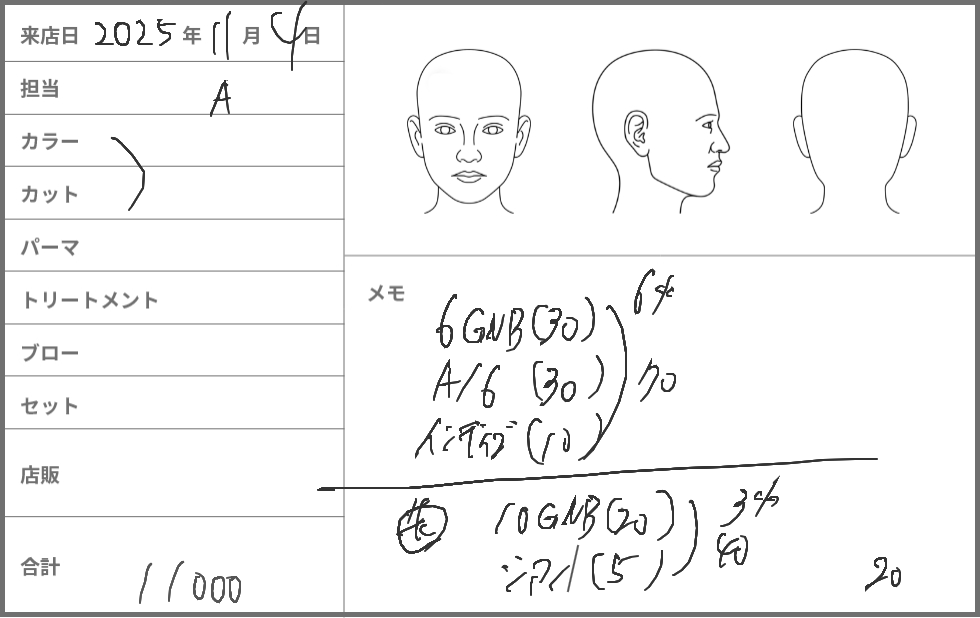 来店日 2025年 11月 4日
担当 A
カラー
カット
パーマ
トリートメント
ブロー
セット
店販
合計 11000
メモ
6GNB(30) 6%
A/6 (30) 70
インディゴ(10)
10GNB(20) 3%
シアン(5) 40
20